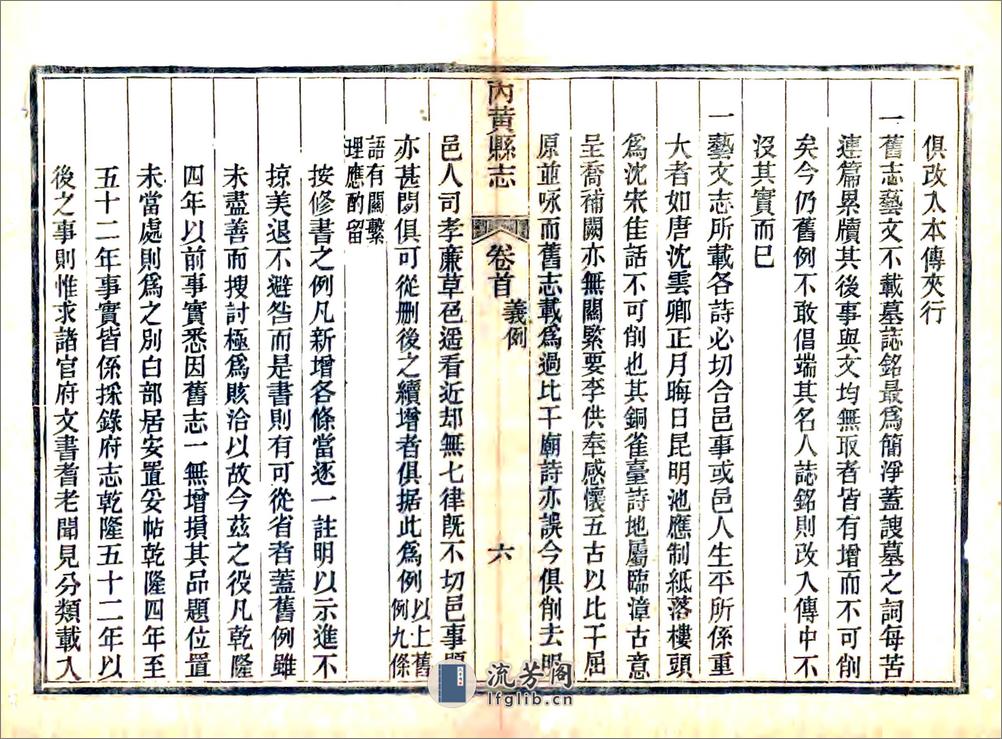 俱改入本傳夾行
一舊志藝文不載墓誌銘最爲簡淨蓋諛墓之詞每苦
連篇累牘其後事與文均無取者皆有增而不可削
矣今仍舊例不敢倡端其名人誌銘則改入傳中不
沒其實而已
一藝文志所載各詩必切合邑事或邑人生平所係重
大者如唐沈雲卿正月晦日昆明池應制紙落樓頭
爲沈宋佳話不可削也其銅雀臺詩地屬臨漳古意
呈喬補闕亦無關緊要李供奉感懷五古以比干屈
原並咏而舊志載爲過比干廟詩亦誤今俱削去明
內黃縣志
卷首
義例
六
邑人司孝廉草色遥看近却無七律旣不切邑事題
亦甚閒俱可從删後之續增者俱据此爲例以上舊例九條
語有關繫
理應酌留
按修書之例凡新增各條當逐一註明以示進不
掠美退不避咎而是書則有可從省者蓋舊例雖
未盡善而搜討極爲賅洽以故今茲之役凡乾隆
四年以前事實悉因舊志一無增損其品題位置
未當處則爲之別白部居安置妥帖乾隆四年至
五十二年事實皆係採錄府志乾隆五十二年以
後之事則惟求諸官府文書耆老聞見分類載入
流芳阁
lfglib.cn